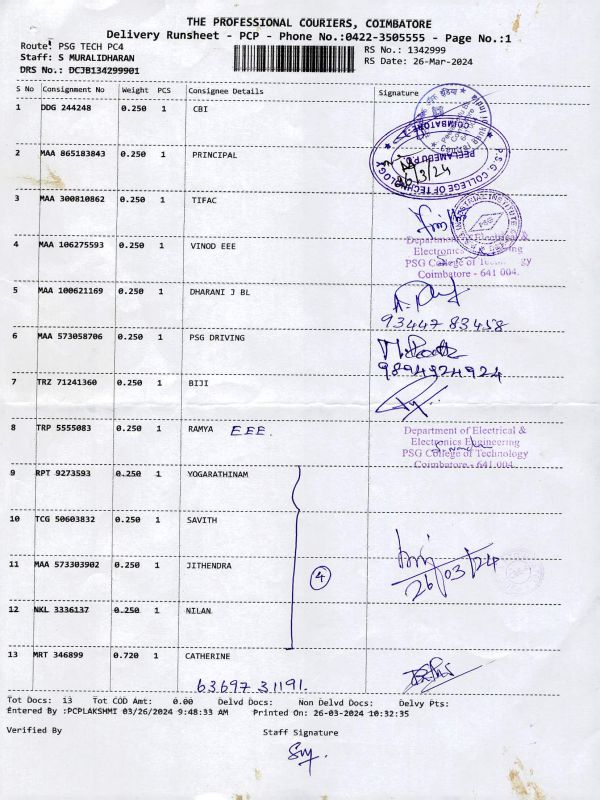 THE PROFESSIONAL COURIERS, COIMBATORE
Delivery Runsheet - PCP - Phone No.:0422-3505555 - Page No.:1
Route: PSG TECH PC4 RS No.: 1342999
Staff: S MURALIDHARAN RS Date: 26-Mar-2024
DRS No.: DCJB134299901
S No Consignment No Weight PCS Consignee Details Signature
1 DDG 244248 0.250 1 CBI
2 MAA 865183843 0.250 1 PRINCIPAL
P.S.G. COLLEGE OF TECHNOLOGY
COIMBATORE
26/3/24
3 MAA 300810862 0.250 1 TIFAC
4 MAA 106275593 0.250 1 VINOD EEE
Department of Electrical &
Electronics Engineering
PSG College of Technology
Coimbatore - 641 004.
5 MAA 100621169 0.250 1 DHARANI J BL
93447 83458
6 MAA 573058706 0.250 1 PSG DRIVING
9894924924
7 TRZ 71241360 0.250 1 BIJI
8 TRP 5555083 0.250 1 RAMYA EEE.
Department of Electrical &
Electronics Engineering
PSG College of Technology
Coimbatore - 641 004
9 RPT 9273593 0.250 1 YOGARATHINAM
10 TCG 50603832 0.250 1 SAVITH
11 MAA 573303902 0.250 1 JITHENDRA
4
26/03/24
12 NKL 3336137 0.250 1 NILAN
13 MRT 346899 0.720 1 CATHERINE
63697 31191.
Tot Docs: 13 Tot COD Amt: 0.00 Delvd Docs: Non Delvd Docs: Delvy Pts:
Entered By :PCPLAKSHMI 03/26/2024 9:48:33 AM Printed On: 26-03-2024 10:32:35
Verified By Staff Signature